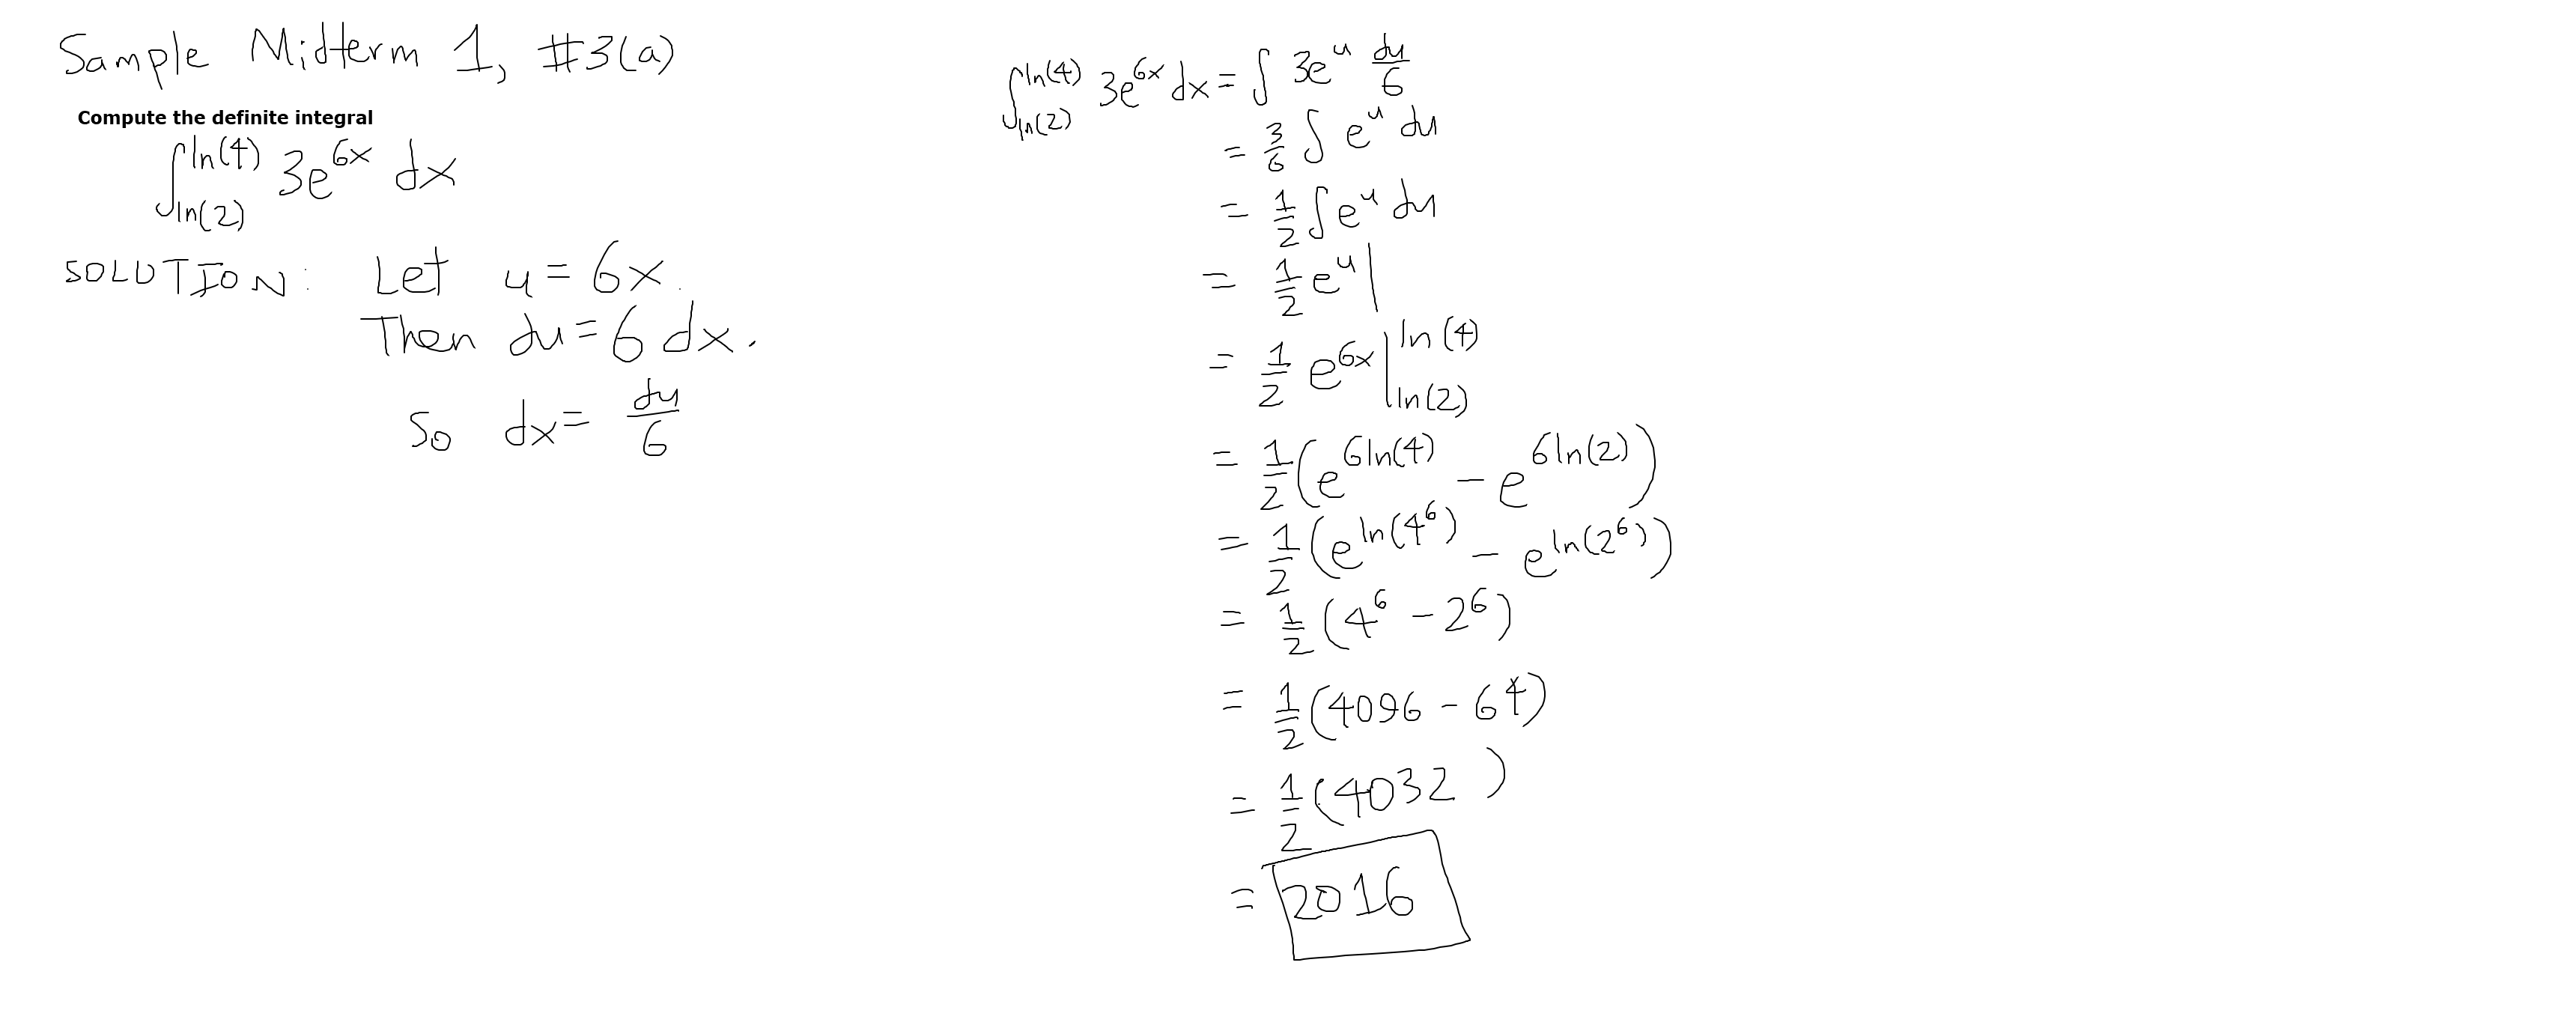 Sample Midterm 1, #3(a)
Compute the definite integral
∫_{ln(2)}^{ln(4)} 3e^{6x} dx
SOLUTION: Let u = 6x.
Then du = 6 dx.
So dx = du/6
∫_{ln(2)}^{ln(4)} 3e^{6x} dx = ∫ 3e^u du/6
= 3/6 ∫ e^u du
= 1/2 ∫ e^u du
= 1/2 e^u |
= 1/2 e^{6x} |_{ln(2)}^{ln(4)}
= 1/2 (e^{6ln(4)} - e^{6ln(2)})
= 1/2 (e^{ln(4^6)} - e^{ln(2^6)})
= 1/2 (4^6 - 2^6)
= 1/2 (4096 - 64)
= 1/2 (4032)
= 2016